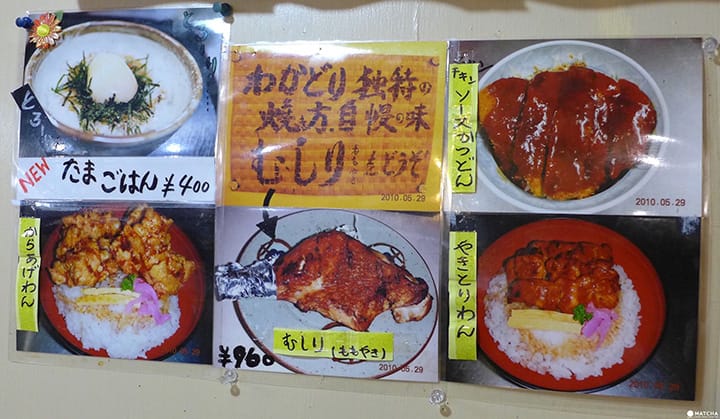 とろ
NEW
たまごはん ¥400
わかどり 独特の
焼き方、自慢の味
むしり ももやき をどうぞ
2010.05.29
チキン
ソースかつどん
2010.05.29
からあげわん
2010.05.29
¥960
むしり (ももやき)
2010.05.29
やきとりわん
2010.05.29
MATCHA